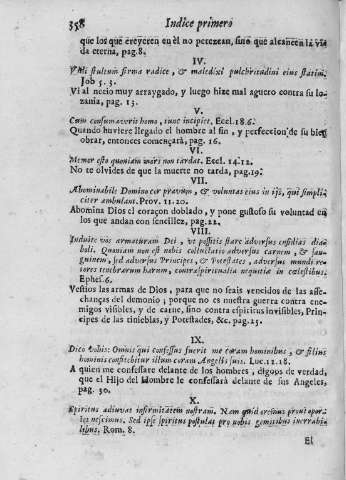 358 Indice primero
que los que creyeren en èl no perezcan, sino que alcancen la vi-
da eterna, pag. 8.
IV.
Vidi stultum firma radice, & maledixi pulchritudini eius statim.
Job 5. 3.
Vi al necio muy arraygado, y luego hize mal aguero contra su lo-
zania, pag. 13.
V.
Cum consumaverit homo, tunc incipiet. Eccl. 18. 6.
Quando huviere llegado el hombre al fin, y perfeccion de su bien
obrar, entonces començarà, pag. 16.
VI.
Memor esto quoniam mors non tardat. Eccl. 14. 12.
No te olvides de que la muerte no tarda, pag. 19.
VII.
Abominabile Domino cor pravum, & voluntas eius in ijs, qui simpli-
citer ambulant. Prov. 11. 20.
Abomina Dios el coraçon doblado, y pone gustoso su voluntad en
los que andan con sencillez, pag. 22.
VIII.
Induite vos armaturam Dei, ut possitis stare adversus insidias dia-
boli. Quoniam non est nobis colluctatio adversus carnem, & san-
guinem, sed adversus Principes, & Potestates, adversus mundi re-
ctores tenebrarum harum, contra spiritualia nequitiæ in cœlestibus.
Ephes. 6.
Vestios las armas de Dios, para que no seais vencidos de las asse-
chanças del demonio; porque no es nuestra guerra contra ene-
migos visibles, y de carne, sino contra espiritus invisibles, Prin-
cipes de las tinieblas, y Potestades, &c. pag. 25.
IX.
Dico vobis: Omnis qui confessus fuerit me coram hominibus, & filius
hominis confitebitur illum coram Angelis suis. Luc. 12. 18.
A quien me confessare delante de los hombres, digoos de verdad,
que el Hijo del Hombre le confessarà delante de sus Angeles,
pag. 30.
X.
Spiritus adiuvat infirmitatem nostram. Nam quid oremus prout opor-
tet nescimus. Sed ipse spiritus postulat pro nobis gemitibus inenarrabi-
libus. Rom. 8.
El